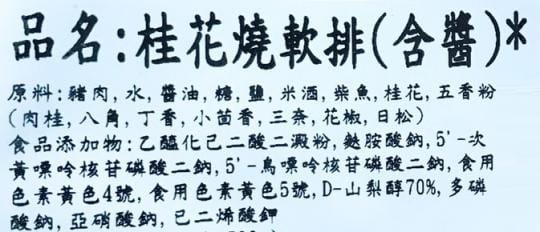 品名:桂花燒軟排(含醬)*
原料:豬肉,水,醬油,糖,鹽,米酒,柴魚,桂花,五香粉
(肉桂,八角,丁香,小茴香,三奈,花椒,日松)
食品添加物:乙醯化己二酸二澱粉,麩胺酸鈉,5'-次
黃嘌呤核苷磷酸二鈉,5'-鳥嘌呤核苷磷酸二鈉,食用
色素黃色4號,食用色素黃色5號,D-山梨醇70%,多磷
酸鈉,亞硝酸鈉,己二烯酸鉀